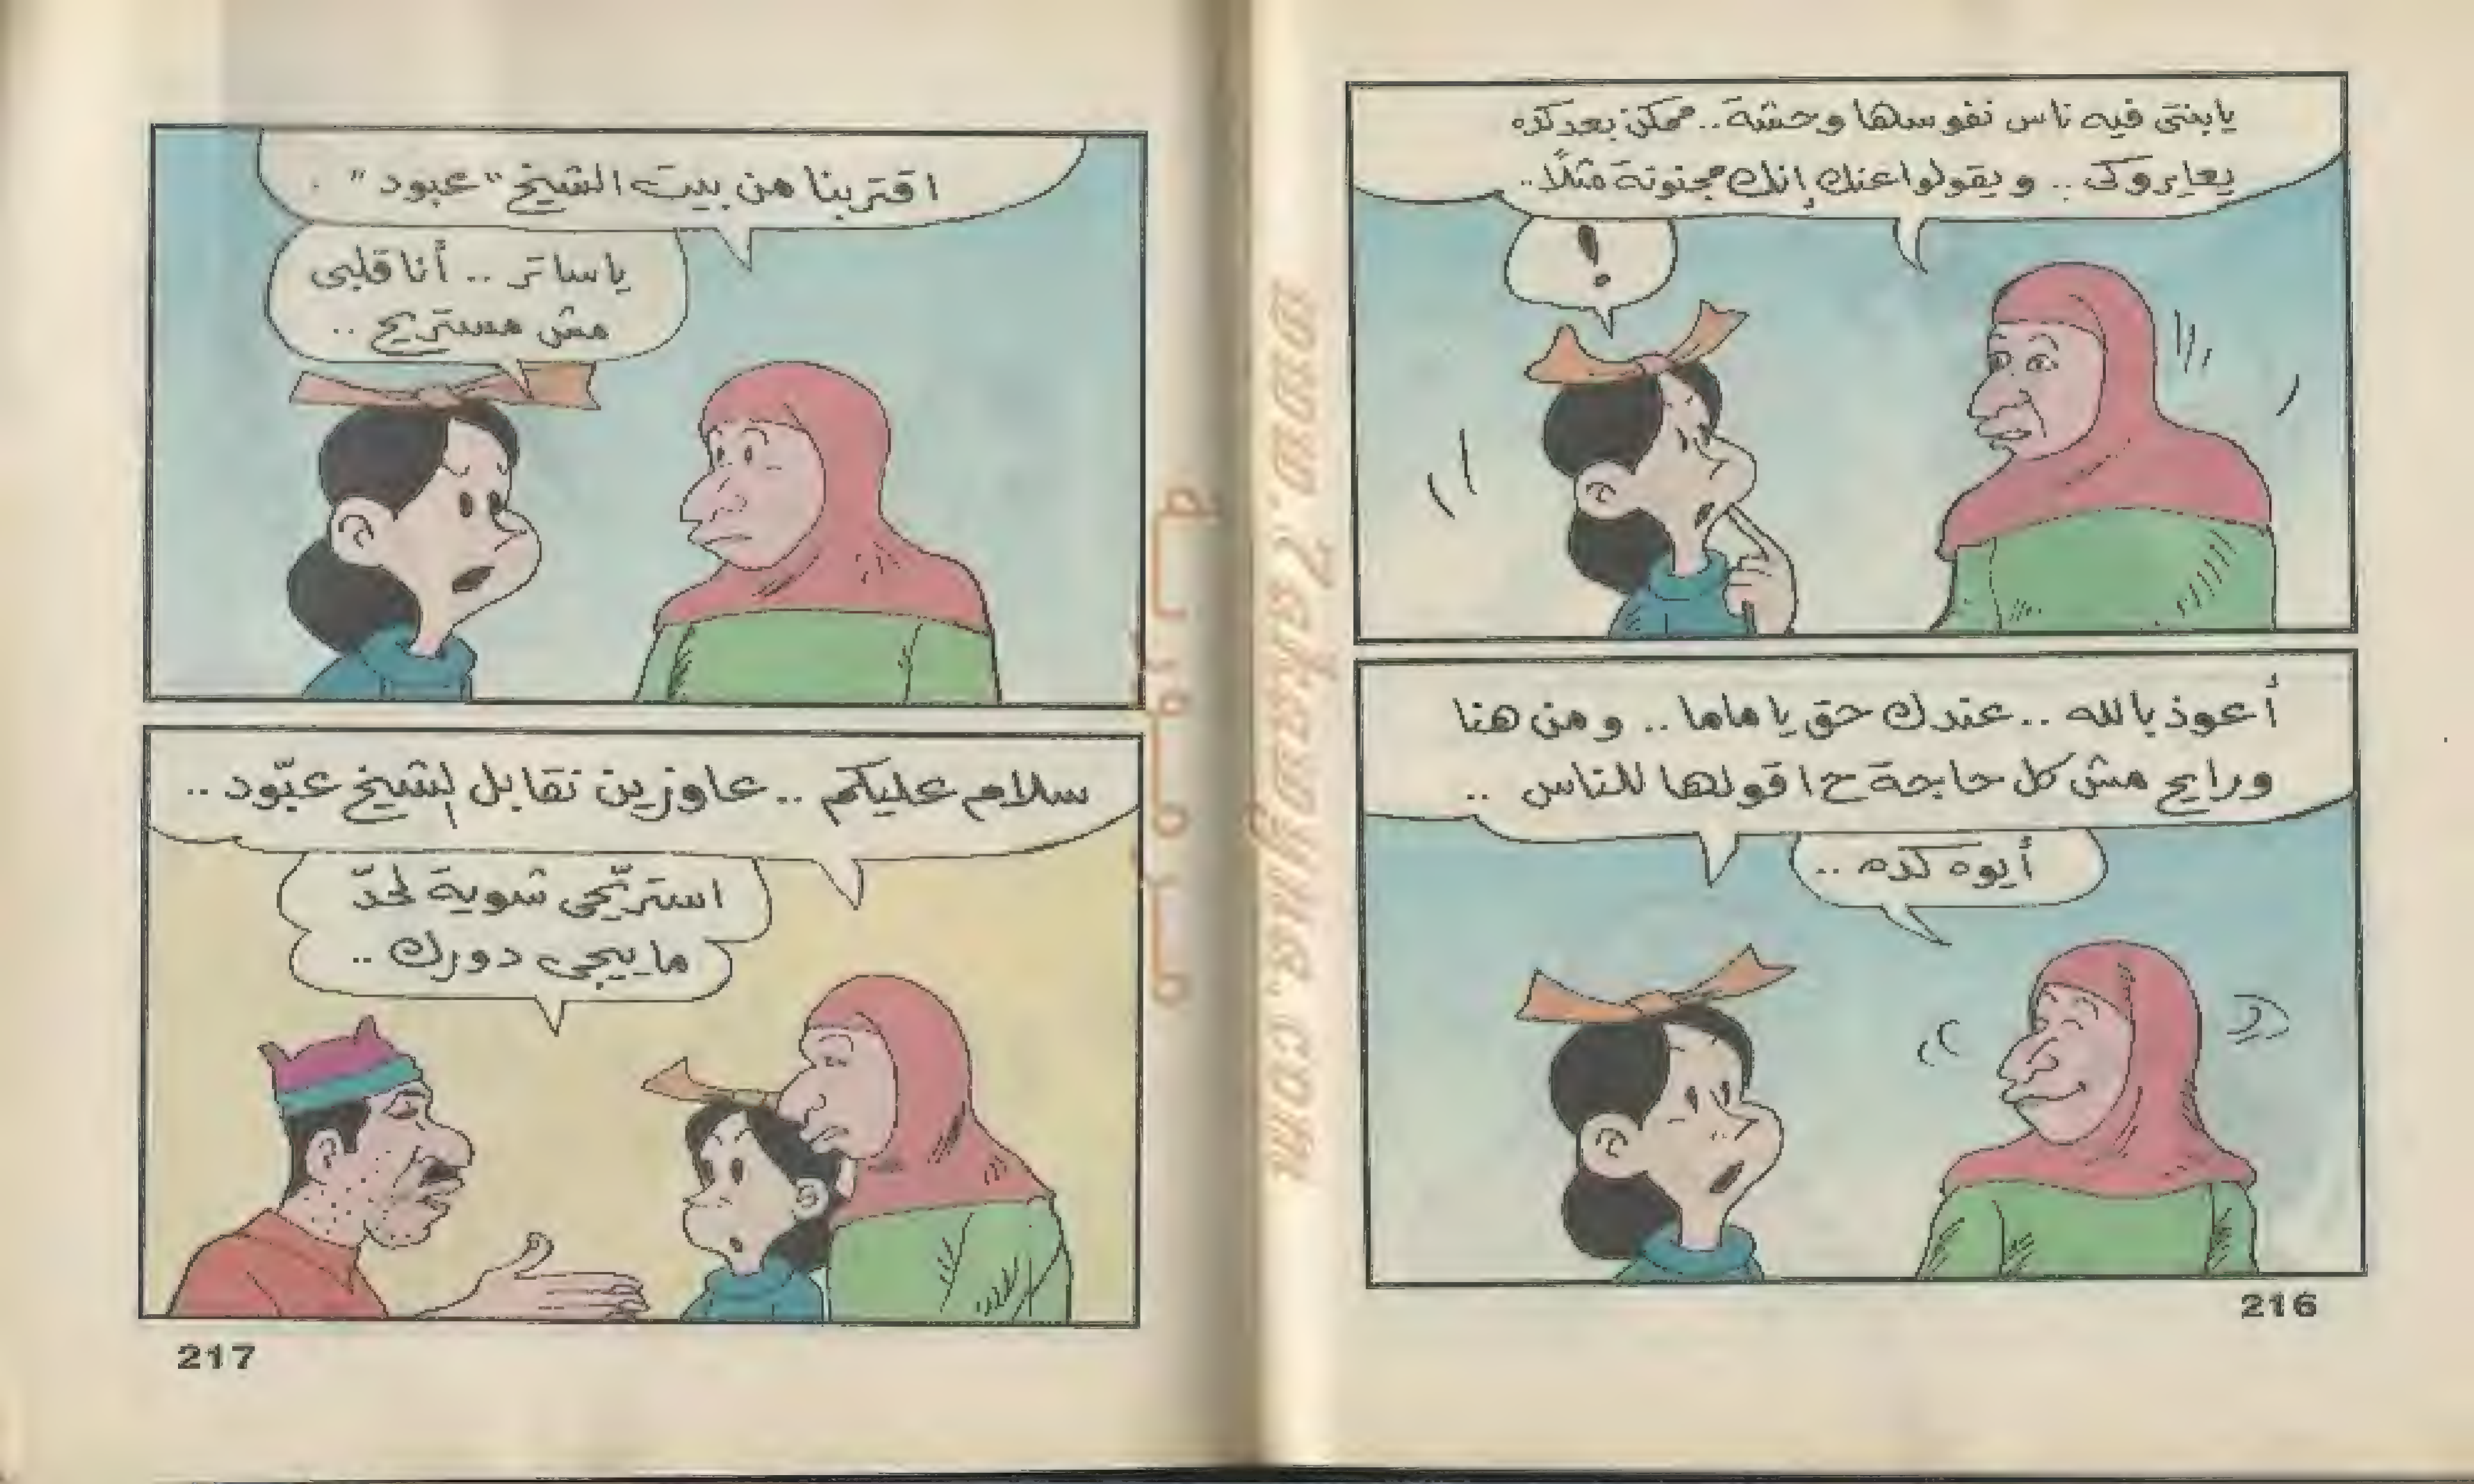 يابنتى فيه ناس نفوسها وحشة.. ممكن بعد كده
يعايروكى.. ويقولوا عنك إنك مجنونة مثلاً..
!
أعوذ بالله.. عندك حق يا ماما.. ومن هنا
ورايح مش كل حاجة ح اقولها للناس..
أيوه كده..
216
اقتربنا من بيت الشيخ "عبود".
ياساتر.. أنا قلبى
مش مستريح..
سلام عليكم.. عاوزين نقابل الشيخ عبّود..
استريّحى شوية لحدّ
ما ييجى دورك..
217